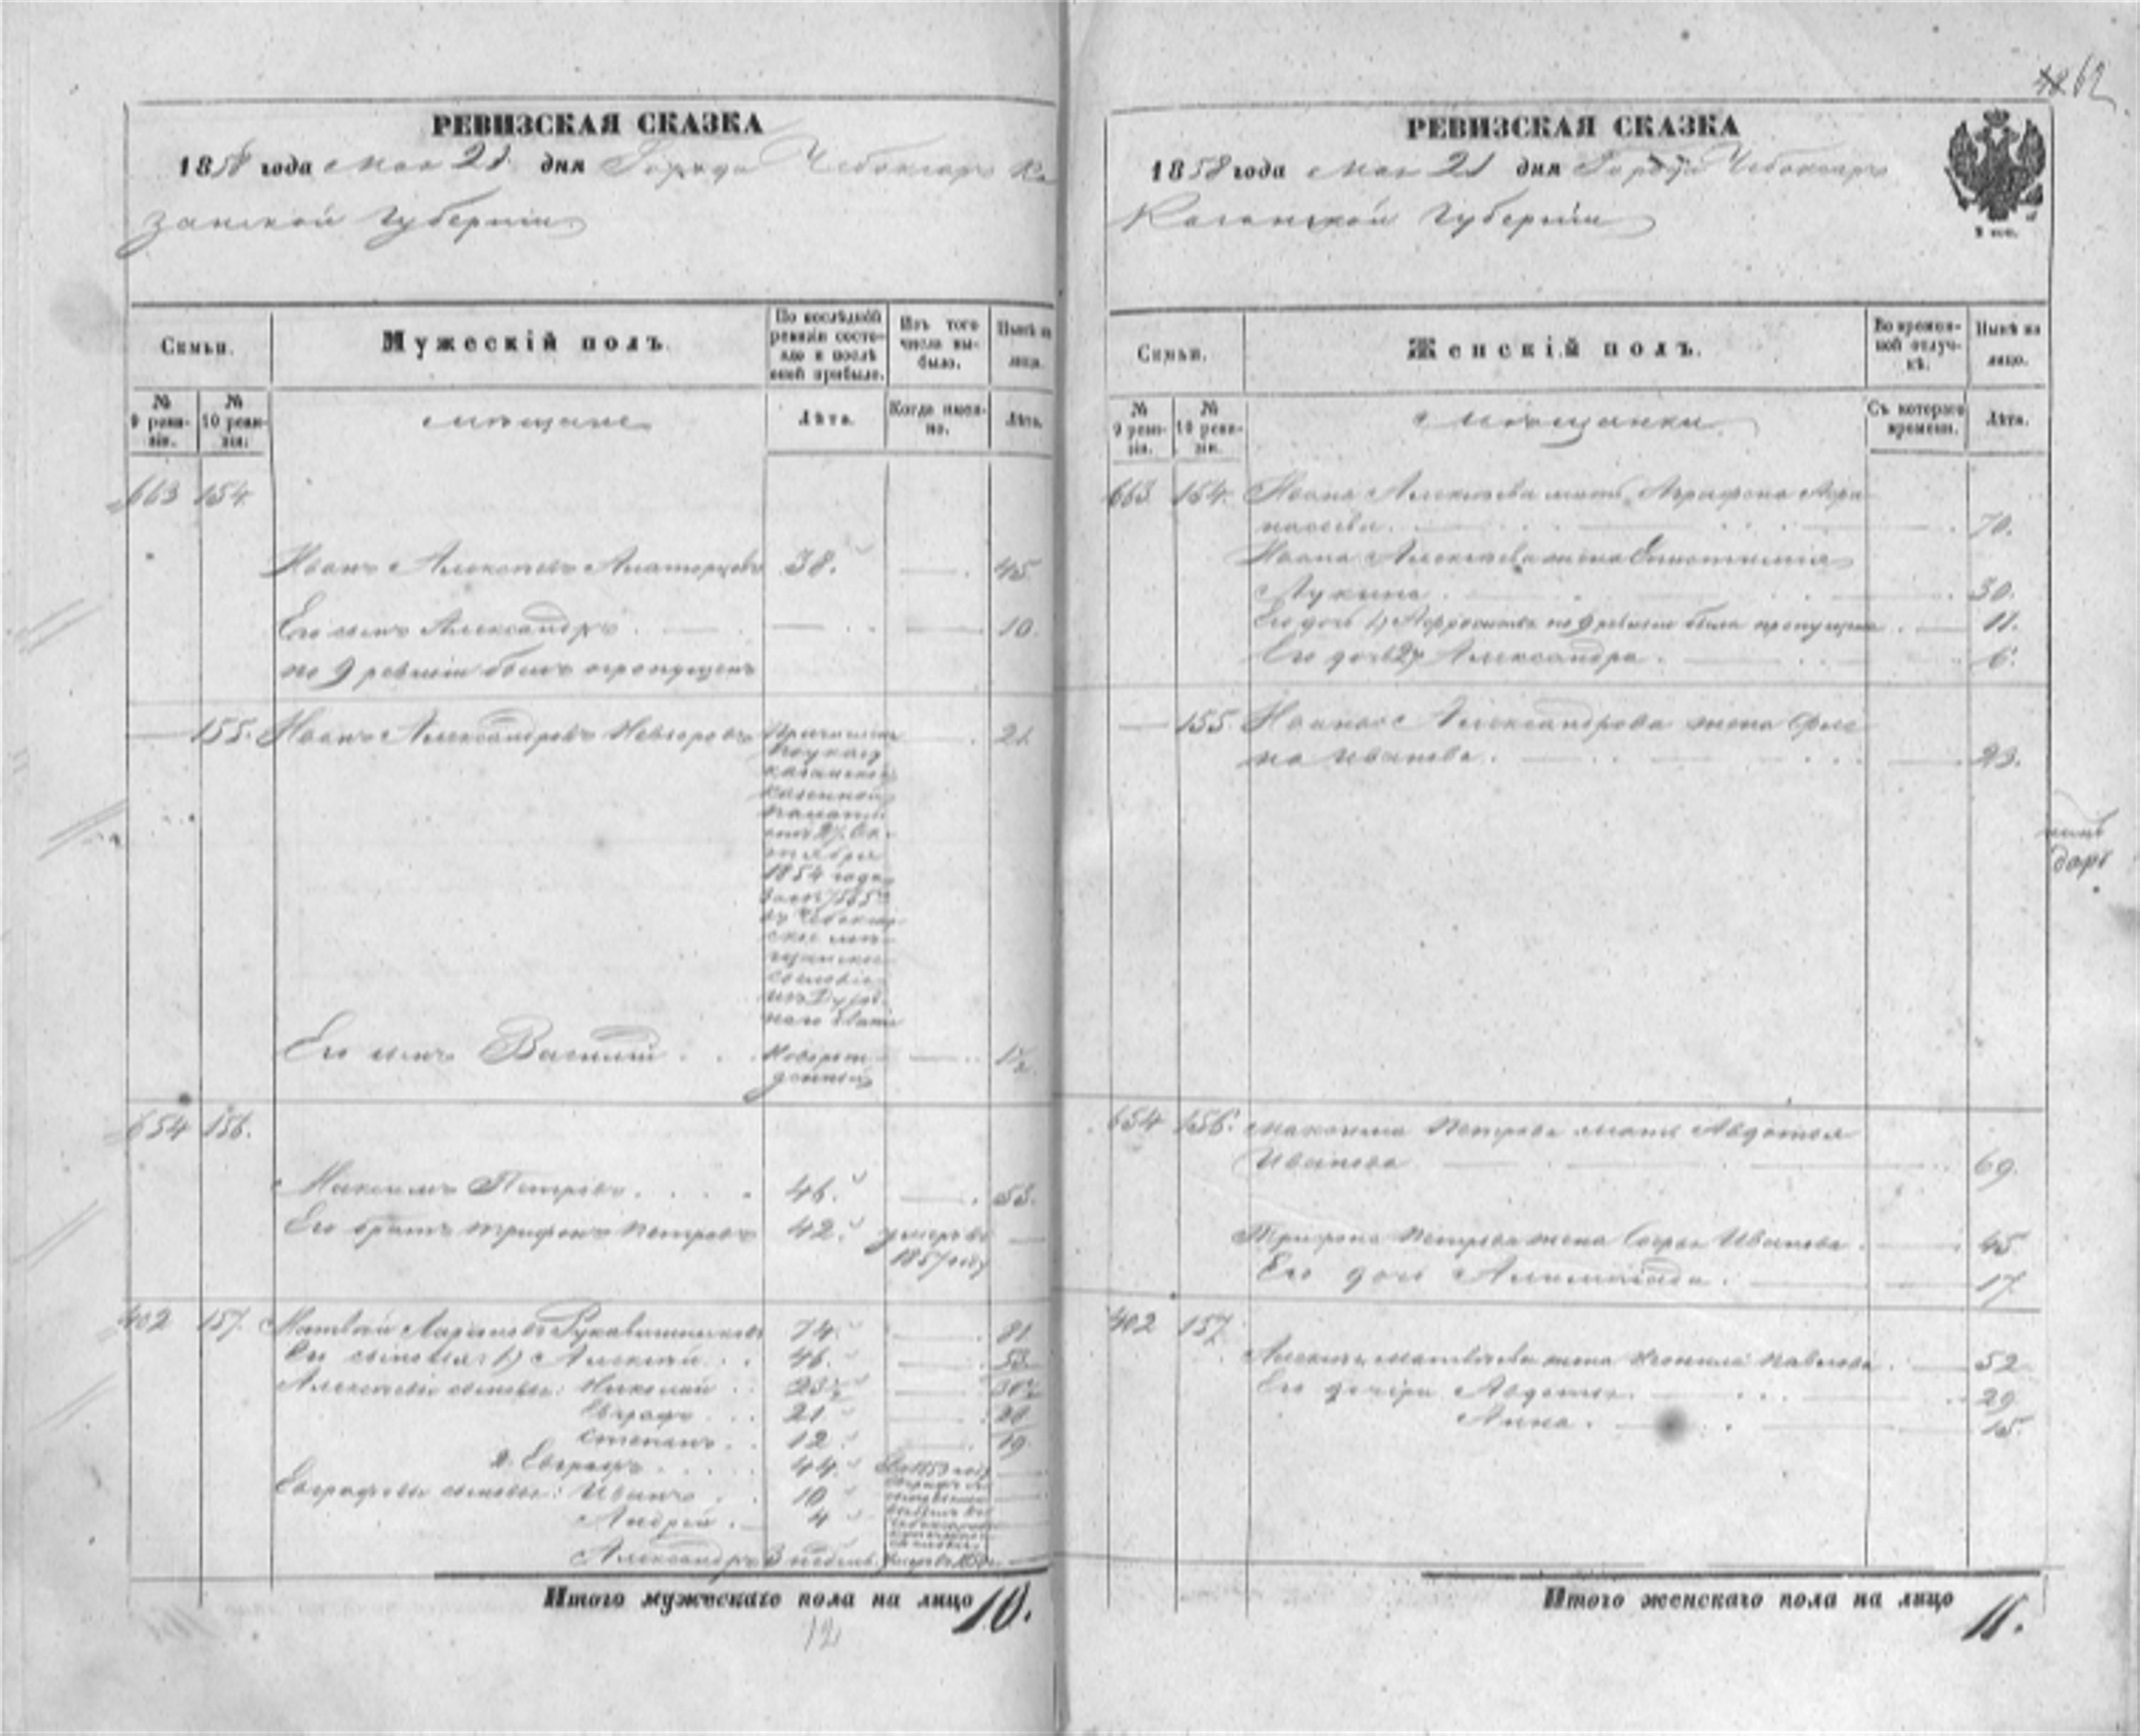 62
РЕВИЗСКАЯ СКАЗКА
1858 года Мая 21 дня Города Чебоксаръ Ка
занской Губерніи
Семьи.
Мужескій полъ.
По послѣдней ревизіи состояло и послѣ оной прибыло.
Изъ того числа выбыло.
Нынѣ на лицо.
№ 9 ревизіи.
№ 10 ревизіи.
мѣщане
Лѣта.
Когда именно.
Лѣта.
663 154
Иванъ Алексѣевъ 38. 45
Его сынъ Александръ 10.
по 9 ревизіи былъ пропущенъ
155. Иванъ Александровъ 21.
Причисленъ
по указу
казанской
казенной
палаты
1854 года
въ Чебоксар
ское мѣ
щанское
сословіе
изъ Духов
наго званія
Его сынъ Василій Новорож
денный 1/2
654 156.
Максимъ Петровъ 46. 53.
Его братъ Трифонъ Петровъ 42. умеръ въ
1857 году
402 157. Матвѣй Ларіоновъ Рукавишниковъ 74. 81
Его сыновья: 1) Алексѣй 46. 53
Алексѣевы сыновья: Николай 23½ 30½
Евграфъ 21 28
Степанъ 12 19
2. Евграфъ 44
Евграфовы сыновья: Иванъ 10
Андрей 4
Александръ 3 недѣль
Итого мужескаго пола на лицо 10.
12
РЕВИЗСКАЯ СКАЗКА
1858 года Мая 21 дня Города Чебоксаръ
Казанской Губерніи
Семьи.
Женскій полъ.
Во временной отлучкѣ.
Нынѣ на лицо.
№ 9 ревизіи.
№ 10 ревизіи.
Мѣщанки
Съ котораго времени.
Лѣта.
663 154. Ивана Алексѣева мать Аграфена Афа
насьева 70.
Ивана Алексѣева жена
Лукина 30.
Его дочь 1) по 9 ревизіи была пропущена 11.
Его дочь 2) Александра 6.
155. Ивана Александрова жена Еле
на Иванова 23.
654 156. Максима Петрова мать Авдотья
Иванова 69.
Трифона Петрова жена Софья Иванова 45
Его дочь 17
402 157
Алексѣя Матвѣева жена Павлова 52
Его дочери Авдотья 29
Анна 15.
Итого женскаго пола на лицо 11.